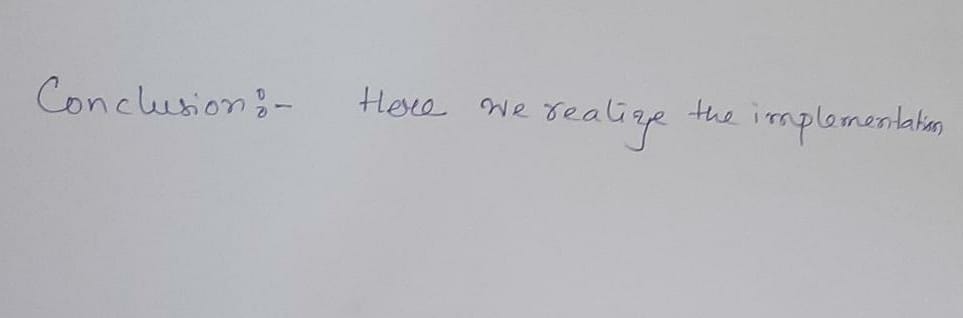 Conclusion:- Here we realize the implementation